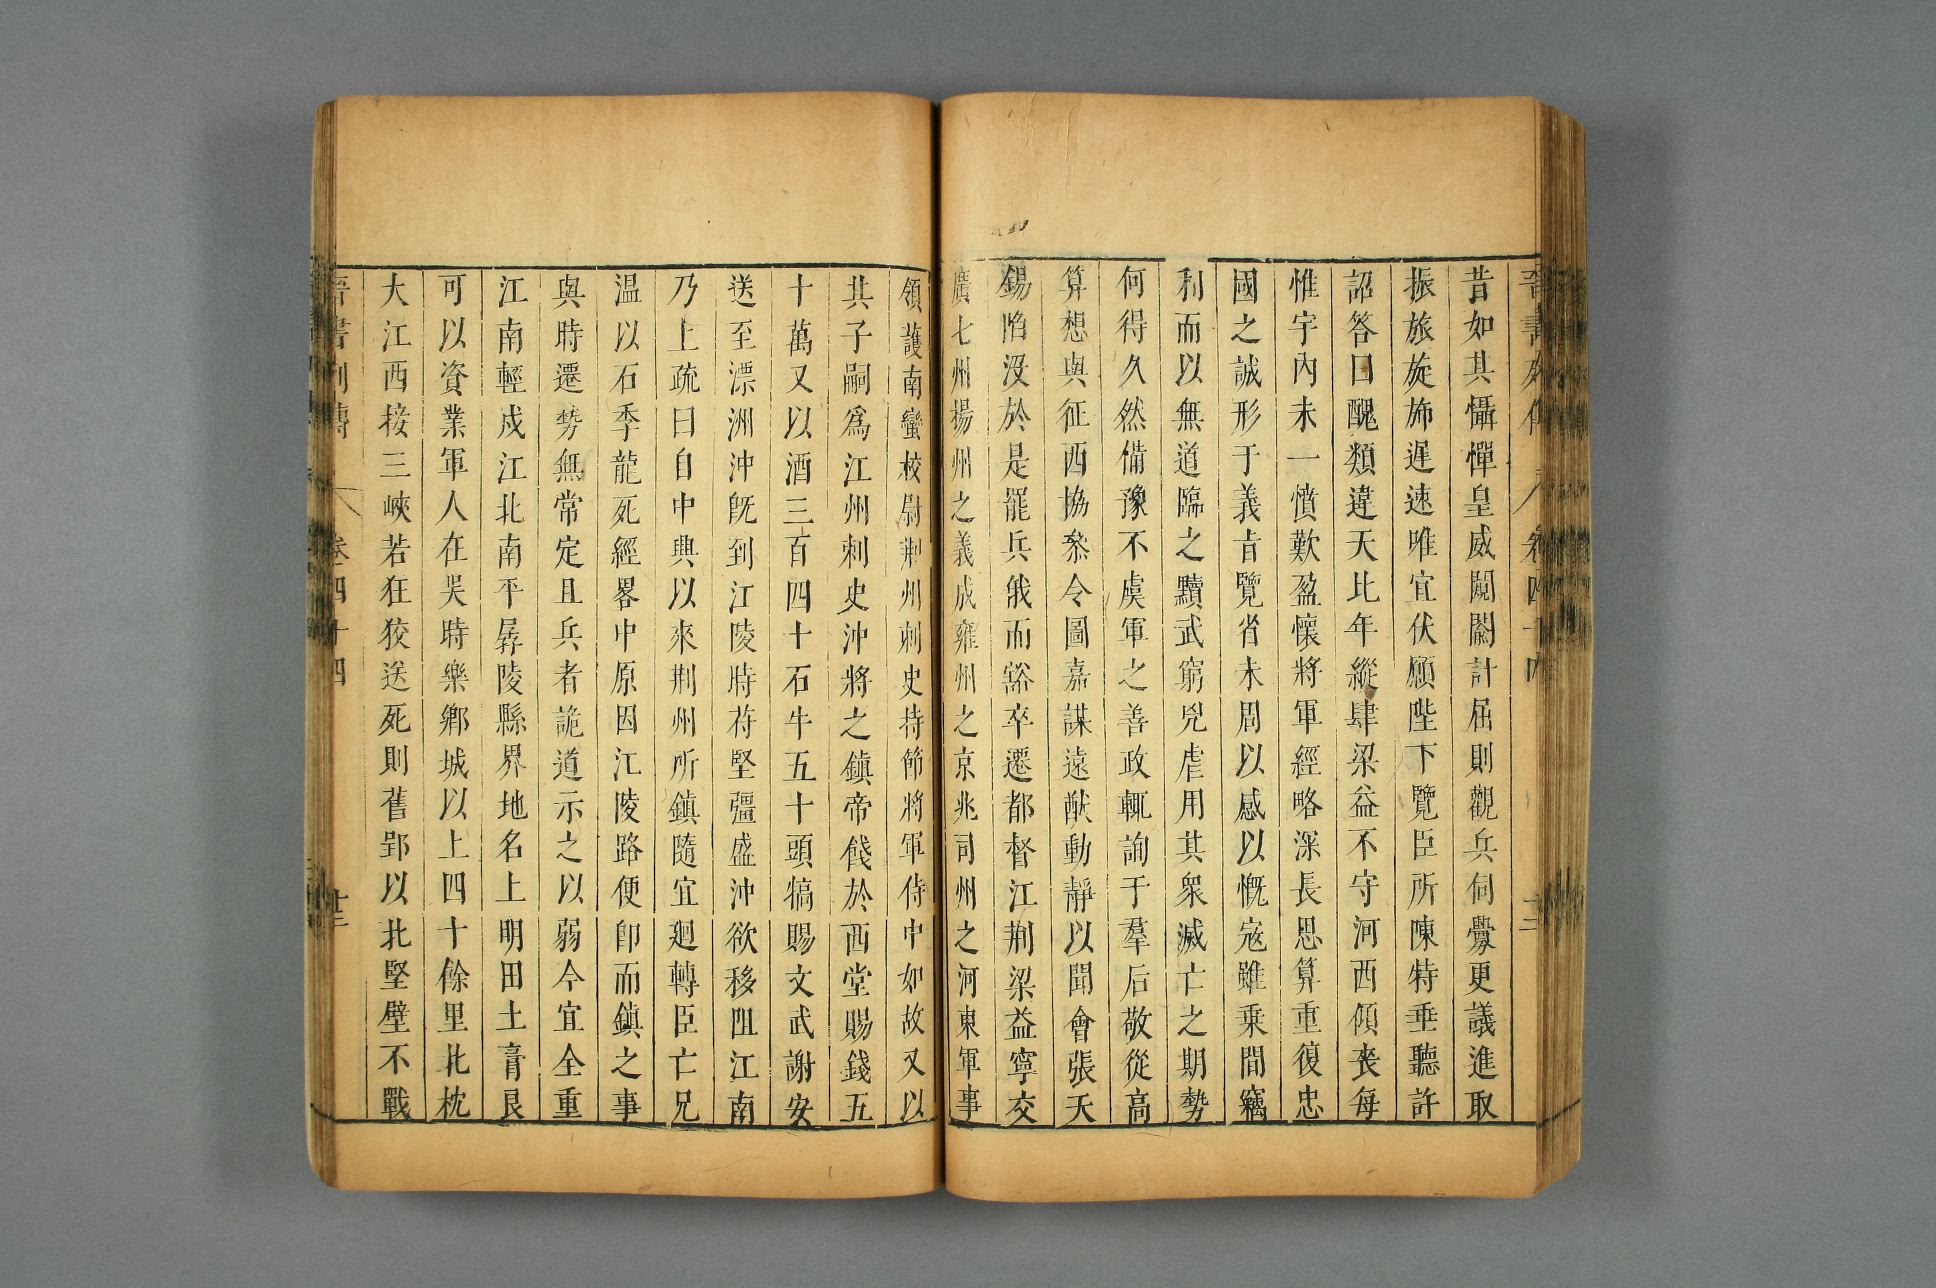 昔如其懾憚皇威闚闞計屈則觀兵伺釁更議進取
振旅旋斾遲速唯宜伏願陛下覽臣所陳特垂聽許
詔答曰醜類違天比年縱肆梁益不守河西傾喪每
惟宇內未一憤歎盈懷將軍經略深長思算重復忠
國之誠形于義旨覽省未周以感以慨寇雖乗間竊
利而以無道臨之黷武窮兇虐用其衆滅亡之期勢
何得久然備豫不虞軍之善政輒詢于羣后敬從高
算想與征西協叅令圖嘉謀遠猷動靜以聞會張天
錫陷沒於是罷兵俄而豁卒遷都督江荆梁益寧交
廣七州揚州之義成雍州之京兆司州之河東軍事
領護南蠻校尉荆州刺史持節將軍侍中如故又以
其子嗣爲江州刺史沖將之鎮帝餞於西堂賜錢五
十萬又以酒三百四十石牛五十頭犒賜文武謝安
送至溧洲沖旣到江陵時苻堅彊盛沖欲移阻江南
乃上疏曰自中興以來荆州所鎮隨宜廻轉臣亡兄
温以石季龍死經畧中原因江陵路便卽而鎮之事
與時遷勢無常定且兵者詭道示之以弱今宜全重
江南輕戍江北南平孱陵縣界地名上明田土膏良
可以資業軍人在吳時樂鄉城以上四十餘里北枕
大江西接三峽若狂狡送死則舊郢以北堅壁不戰
晉書列傳 卷四十四 十三